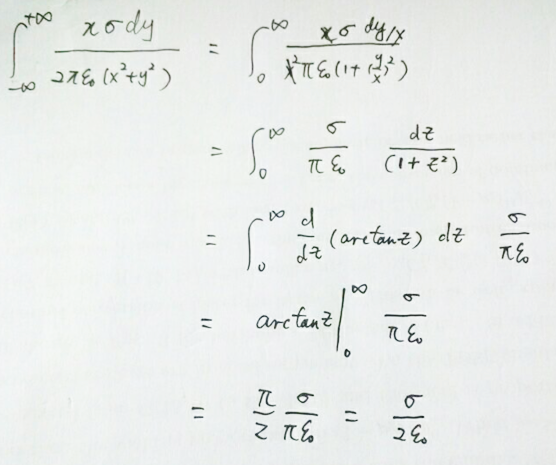 ∫_{-∞}^{+∞} xσdy / 2πε₀(x²+y²) = ∫_0^∞ xσ dy/x / x²πε₀(1+(y/x)²)
= ∫_0^∞ σ/πε₀ dz/(1+z²)
= ∫_0^∞ d/dz (arctanz) dz σ/πε₀
= arctanz |_0^∞ σ/πε₀
= π/2 σ/πε₀ = σ/2ε₀